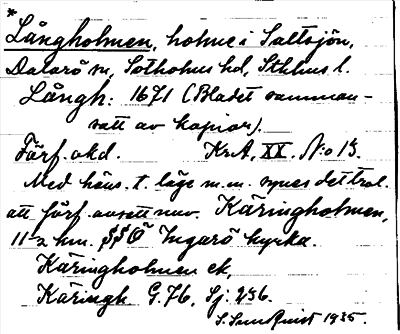 *
Långholmen, holme i Saltsjön,
Dalarö sn, Sotholms hd, Sthlms l.
Långh: 1671 (Bladet samman-
satt av kopior).
Förf. okd. KrA, XX. N:o 13.
Med häns. t. läge m.m. synes det trol.
att förf. avsett nuv. Käringholmen,
11-2 km. SSO Ingarö kyrka.
Käringholmen ek,
Käringh G.76, Sj. 256.
S. Sundquist 1935.